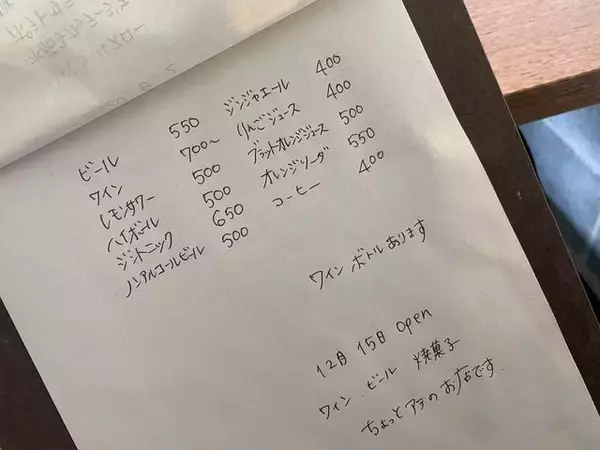 ビール 550
ワイン 700〜
レモンサワー 500
ハイボール 500
ジントニック 650
ノンアルコールビール 500
ジンジャエール 400
りんごジュース 400
ブラットオレンジジュース 500
オレンジソーダ 550
コーヒー 400
ワインボトルあります
12月15日 open
ワイン.ビール 焼菓子
ちょっとアテのお店です.